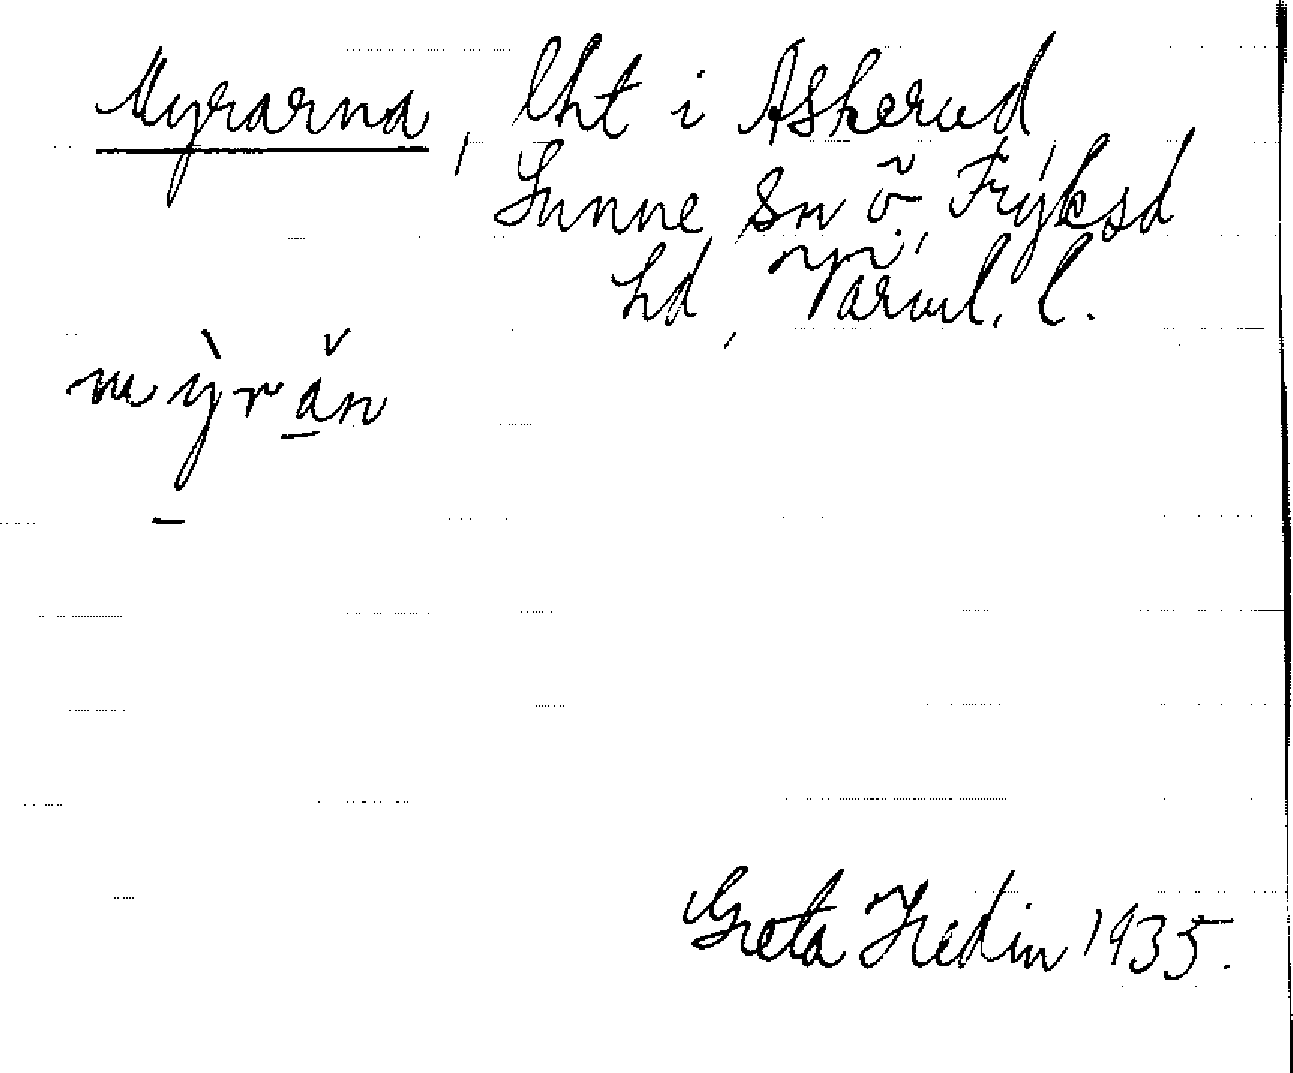 Myrarna, lht i Askerud
Sunne sn ö. Fryksd
hd, Värml. l.
mỳrăn
Greta Hedin 1935.